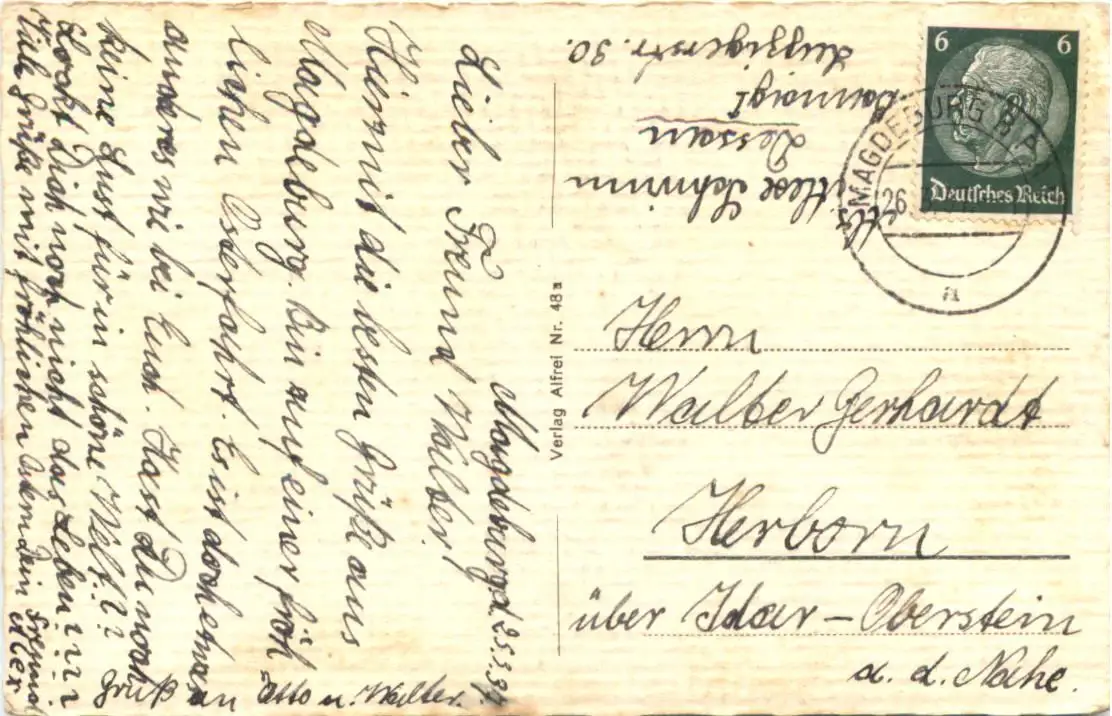 Magdeburg d. 25.3.37
Lieber Freund Walter!
Hiermit die besten Grüße aus
Magdeburg. Bin auf einer fröh
lichen Osterfahrt. Es ist doch etwas
anderes wie bei Euch. Hast Du noch
keine Lust für in schöne Welt??
Lockt Dich noch nicht das Leben????
Viele Grüße mit fröhlichen Dein Freund
Gruß an Otto u. Walter.
Verlag Alfrei Nr. 48a
Schwinn
Dessau
Leipzigerstr. 30.
6 6
Deutsches Reich
MAGDEBURG
26
a
Herrn
Walter Gerhardt
Herborn
über Idar-Oberstein
a. d. Nahe.